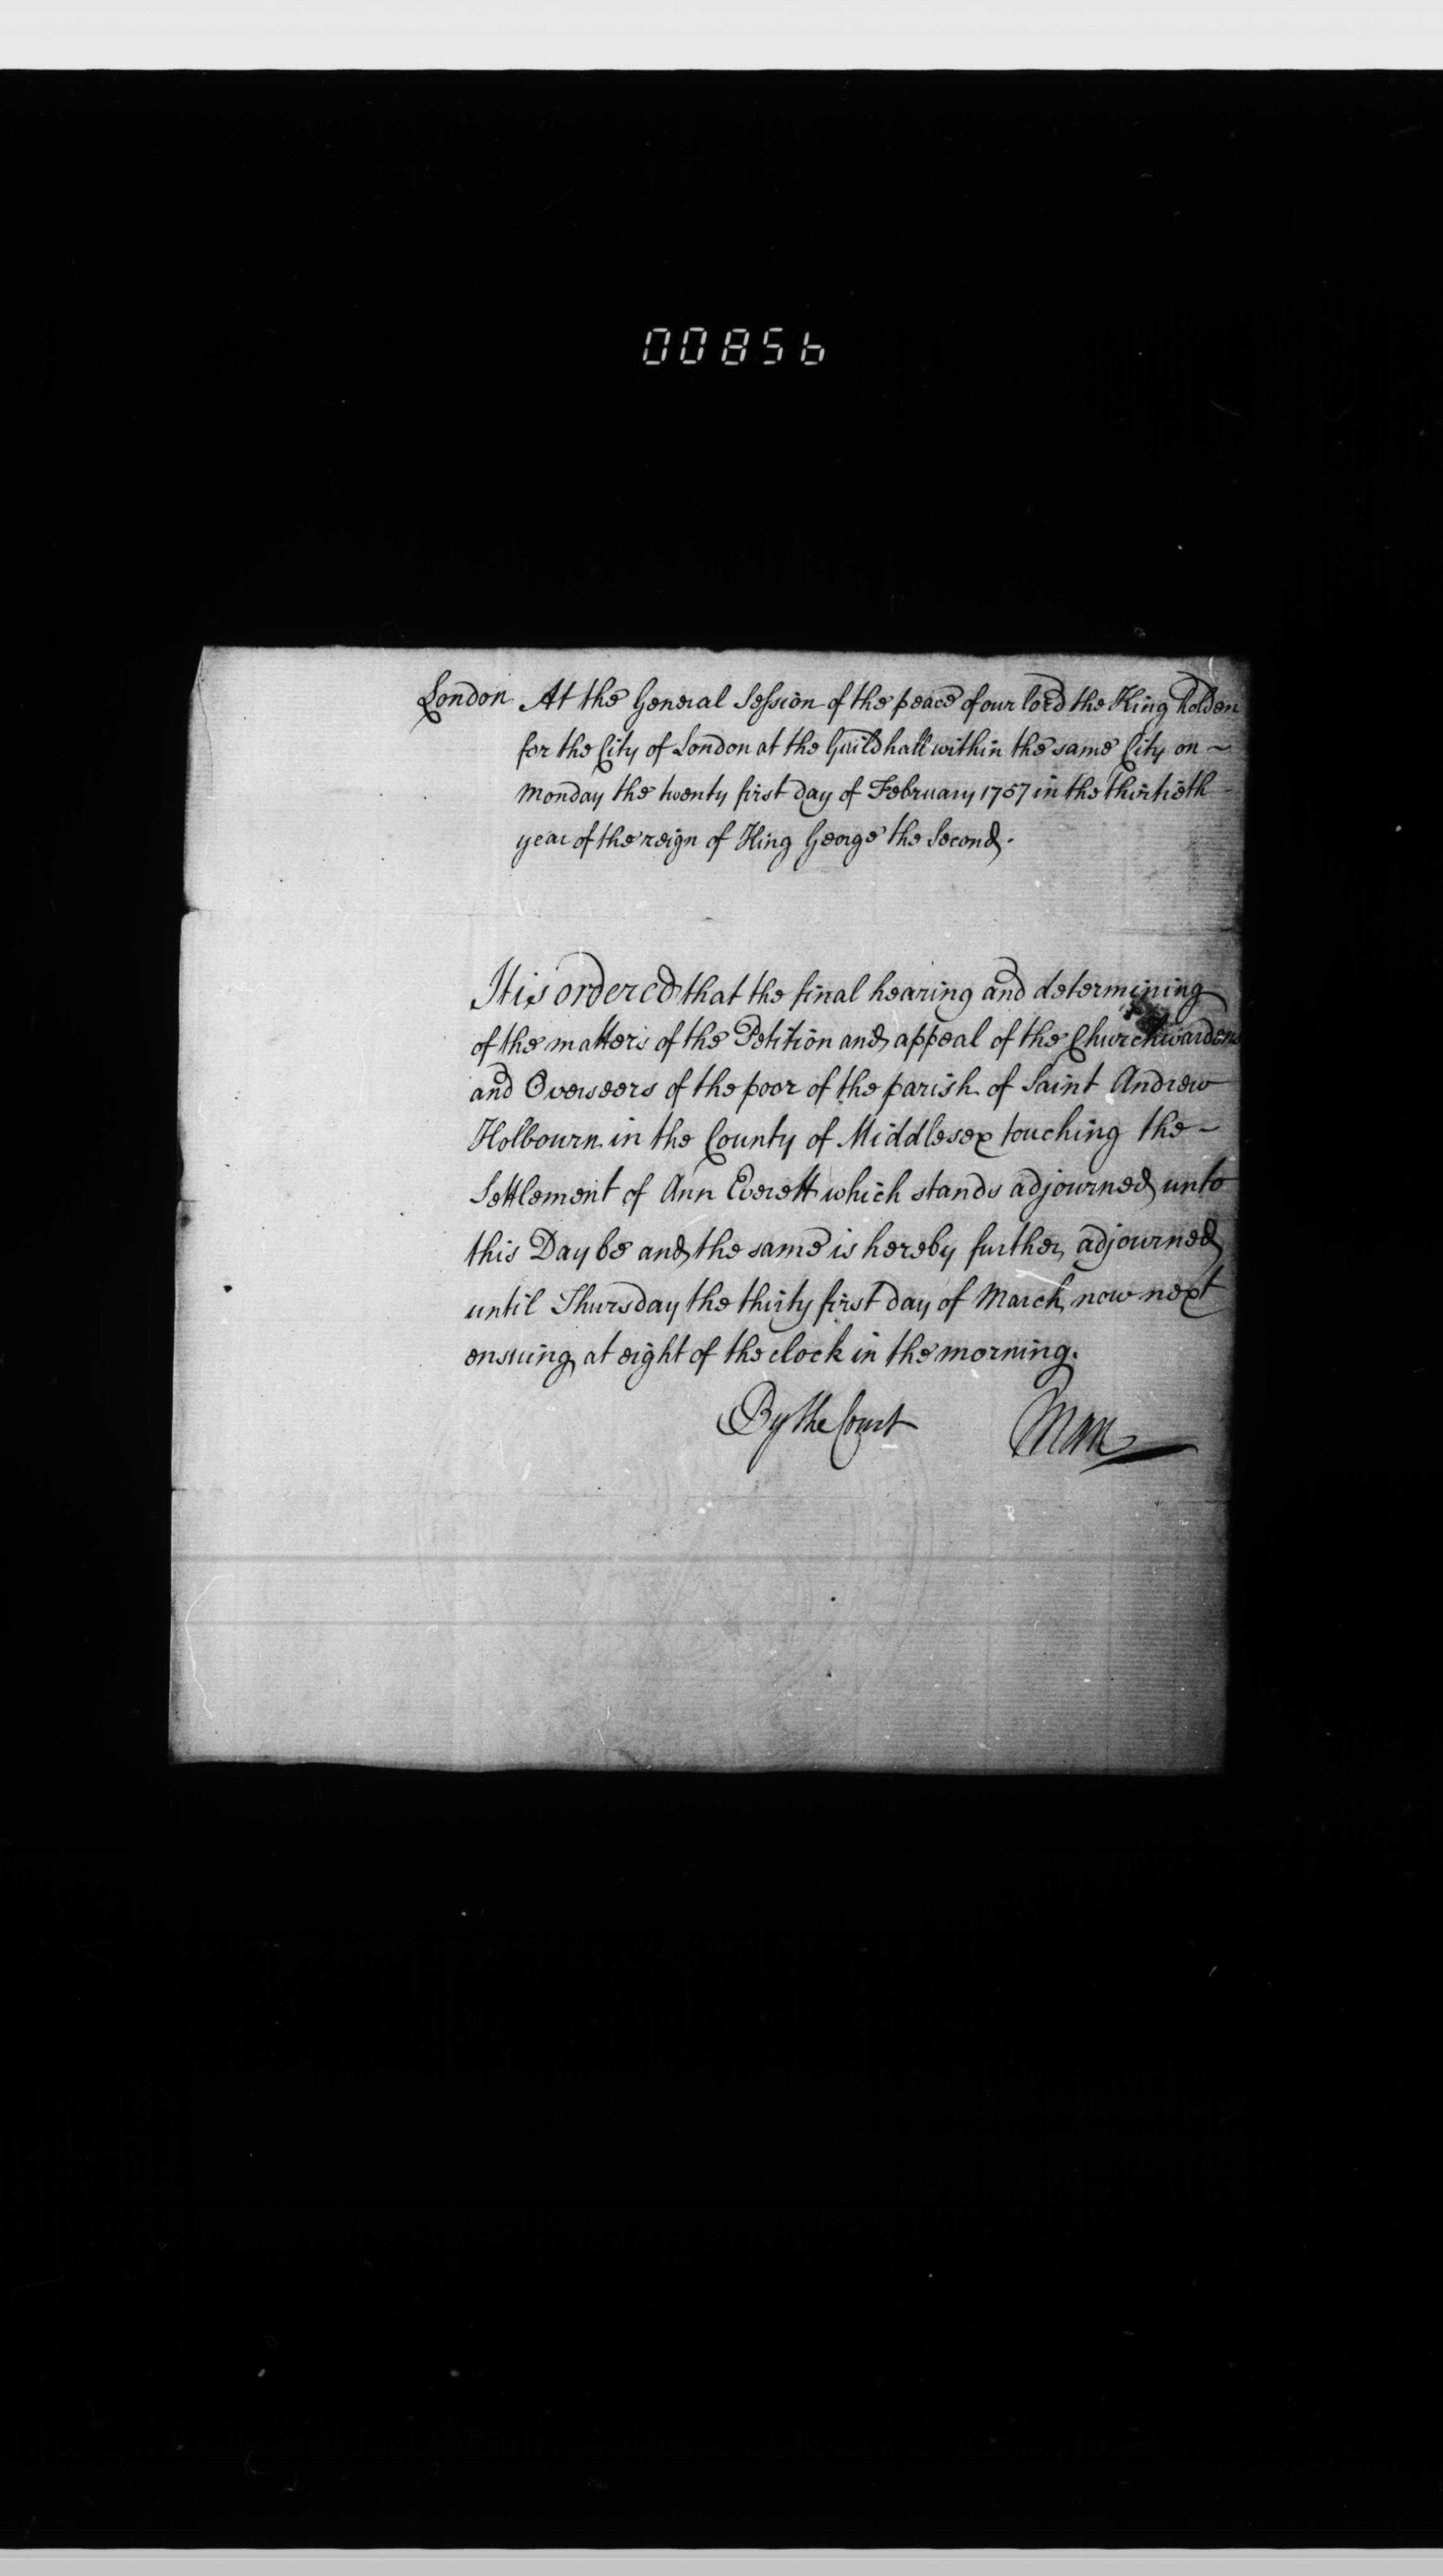 00856
London At the General Session of the peace of our lord the King holden
for the City of London at the Guildhall within the same City on ~
Monday the twenty first day of February 1757 in the thirtieth
year of the reign of King George the Second.
It is ordered that the final hearing and determining
of the matters of the Petition and appeal of the Churchwardens
and Overseers of the poor of the parish of Saint Andrew
Holbourn in the County of Middlesex touching the ~
Settlement of Ann Everett which stands adjourned unto
this Day be and the same is hereby further adjourned
until Thursday the thirty first day of March now next
ensuing at eight of the clock in the morning.
By the Court Man